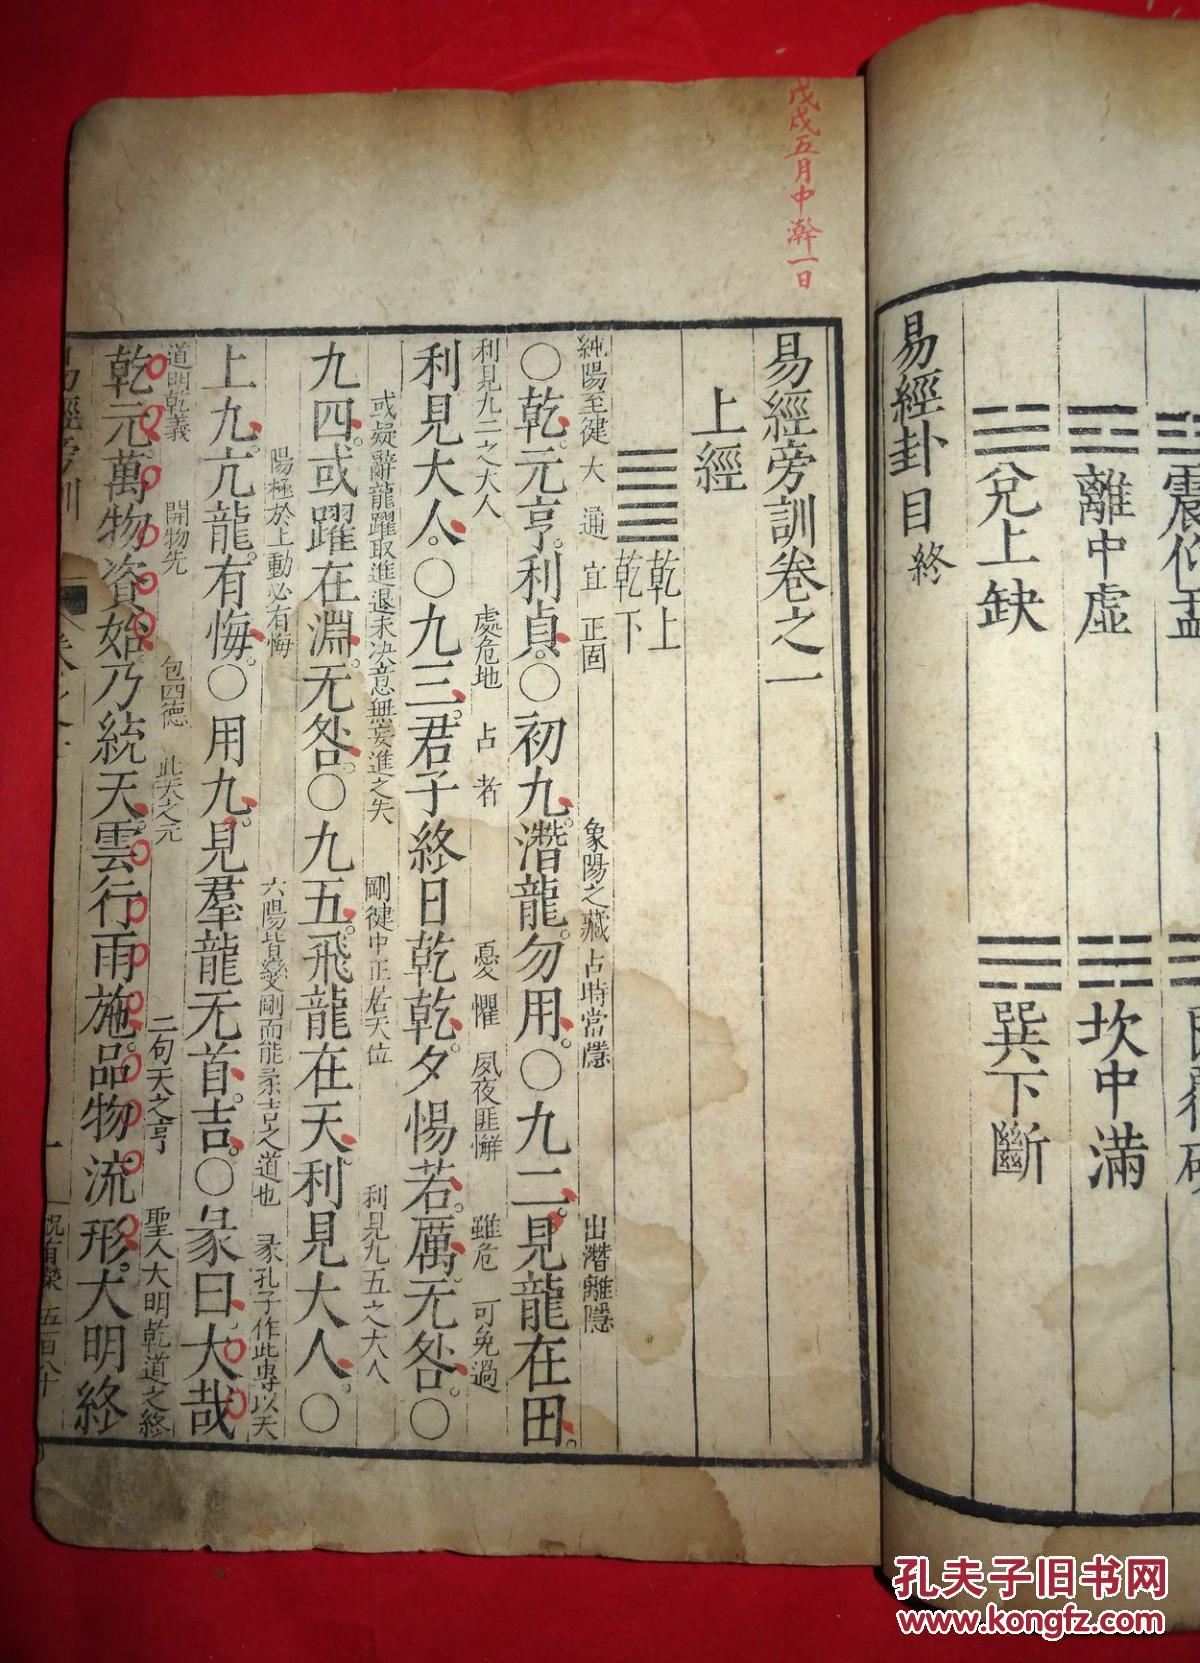 震仰盂
離中虛
坎中滿
兌上缺
巽下斷
易經卦目終
戊戌五月中澣一日
易經旁訓卷之一
上經
乾上
乾下
純陽至健 大 通 宜 正固 象陽之藏 占時當隱 出潛離隱
○乾。元亨。利貞。○初九。潛龍。勿用。○九二。見龍在田。
利見九二之大人 處危地 占 者 憂 懼 夙夜匪懈 雖危 可免過
利見大人。○九三。君子終日乾乾。夕惕若。厲。无咎。○
或疑辭龍躍取進退未決意無妄進之失 剛健中正居天位 利見九五之大人
九四。或躍在淵。无咎。○九五。飛龍在天。利見大人。○
陽極於上動必有悔 六陽皆變剛而能柔吉之道也 彖孔子作此專以天
上九。亢龍。有悔。○用九。見羣龍无首。吉。○彖曰。大哉
道明乾義 開物先 包四德 此天之元 二句天之亨 聖人大明乾道之終
乾元。萬物資始。乃統天。雲行雨施。品物流形。大明終
易經旁訓 卷之一 一 祝有榮 五百八十
孔夫子旧书网
www.kongfz.com